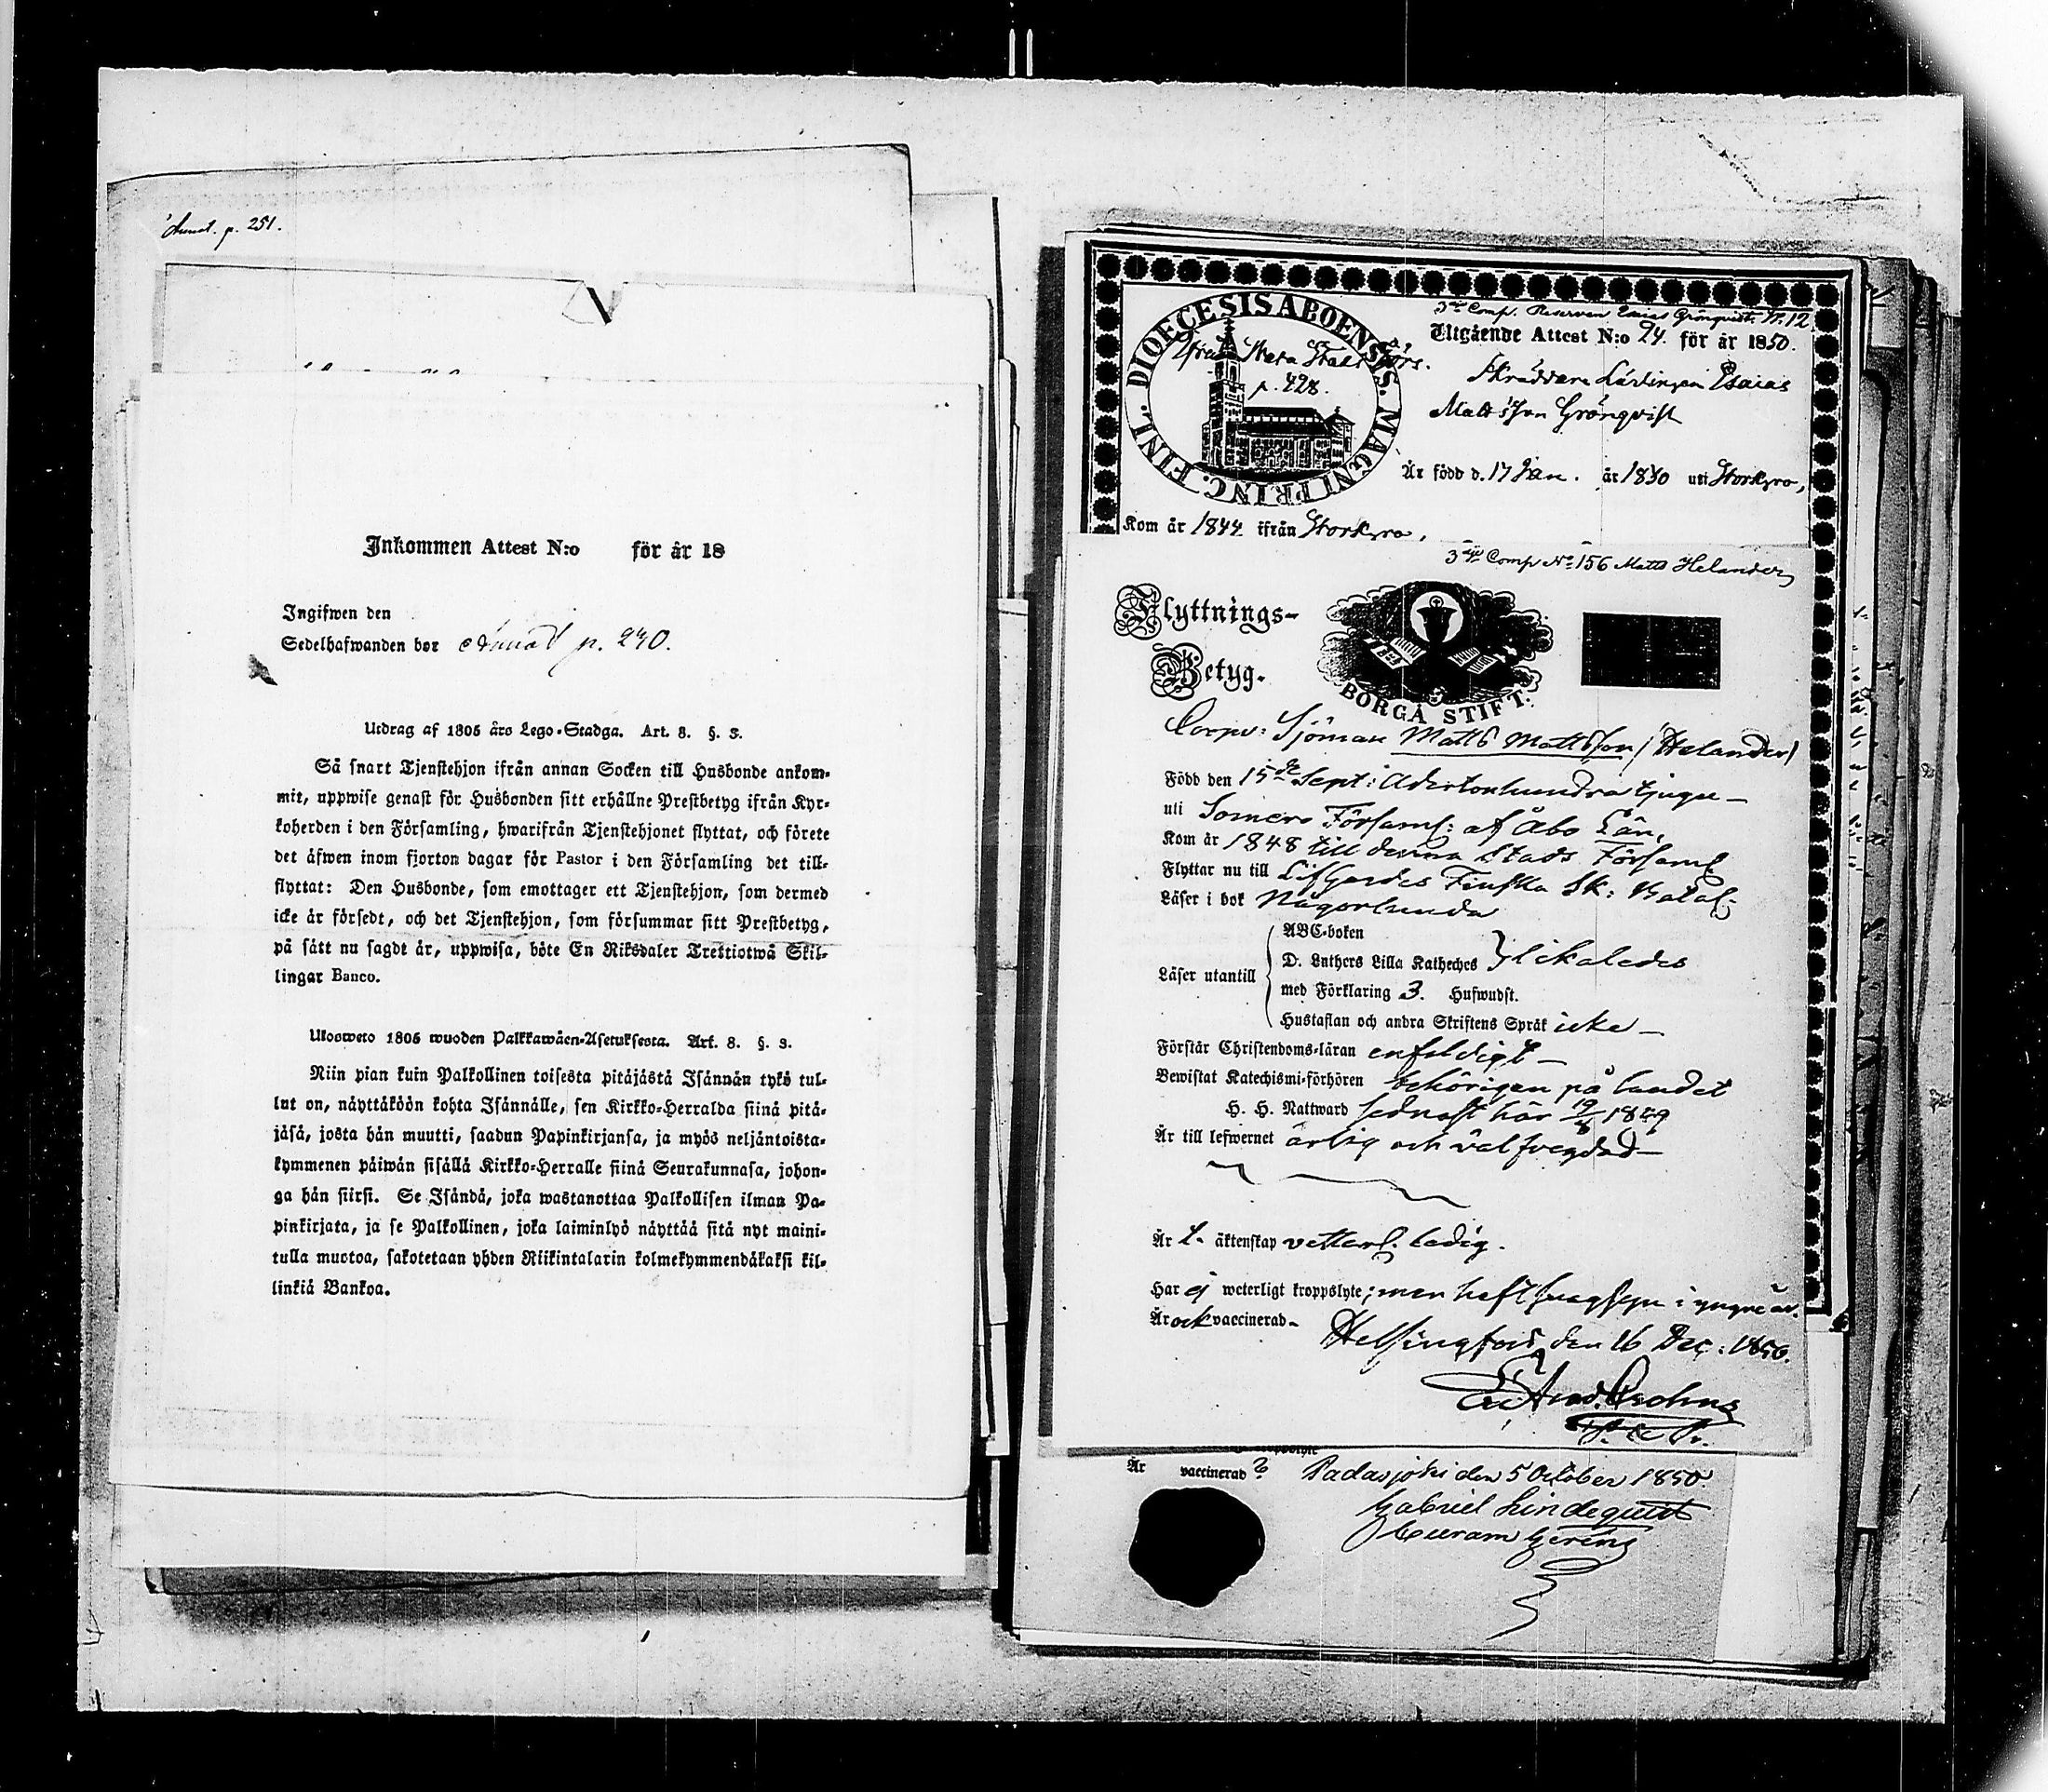 p. 251.
Inkommen Attest N:o för år 18
Ingifwen den
Sedelhafwanden bor p. 240.
Utdrag af 1805 års Lego-Stadga. Art. 8. §. 3.
Så snart Tjenstehjon ifrån annan Socken till Husbonde ankom-
mit, uppwise genast för Husbonden sitt erhållne Prestbetyg ifrån Kyr-
koherden i den Församling, hwarifrån Tjenstehjonet flyttat, och förete
det äfwen inom fjorton dagar för Pastor i den Församling det till-
flyttat: Den Husbonde, som emottager ett Tjenstehjon, som dermed
icke är försedt, och det Tjenstehjon, som försummar sitt Prestbetyg,
på sätt nu sagdt är, uppwisa, böte En Riksdaler Trettiotwå Skil-
lingar Banco.
Ulosweto 1805 wuoden Palkkawäen-Asetuksesta. Art. 8. §. 3.
Niin pian kuin Palkollinen toisesta pitäjästä Isännän tykö tul-
lut on, näyttäköön kohta Isännälle, sen Kirkko-Herralda siinä pitä-
jäsä, josta hän muutti, saadun Papinkirjansa, ja myös neljäntoista-
kymmenen päiwän sisällä Kirkko-Herralle siinä Seurakunnasa, johon-
ga hän siirsi. Se Isändä, joka wastanottaa Palkollisen ilman Pa-
pinkirjata, ja se Palkollinen, joka laiminlyö näyttää sitä nyt maini-
tulla muotoa, sakotetaan yhden Riikintalarin kolmekymmendäkaksi kil-
linkiä Bankoa.
DIOECESIS ABOENSIS. MAGNI PRINC. FINL.
3de Comp. Reserven Esaias Grönqvist N. 12
Utgående Attest N:o 24. för år 1850.
p. 428.
Skräddare Lärlingen Esaias
Mattsson Grönqvist
Är född d. 17 Jan. år 1830 uti Storkyro,
Kom år 1844 ifrån Storkyro,
3dje Comp No 156 Matts Helander
Flyttnings-
Betyg.
BORGÅ STIFT.
Corpv: Sjöman Matts Mattsson / Helander /
Född den 15de Sept: Adertonhundra tjugu —
uti Somero Församl: af Åbo Län,
Kom år 1848 till denna Stads Församl
Flyttar nu till Lifgardes Finska Sk: Batal:
Läser i bok Någorlunda
Läser utantill
ABC-boken
D. Luthers Lilla Katheches likaledes
med Förklaring 3. Hufwudst.
Hustaflan och andra Skriftens Språk icke —
Förstår Christendoms-läran enfaldigt —
Bewistat Katechismi-förhören behörigen på landet
H. H. Nattward sednast här 19/8 1849
Är till lefwernet ärlig och välfrägdad —
Är t. äktenskap vetterl. ledig.
Har ej weterligt kroppslyte; men haft i yngre år.
Är ock vaccinerad -
Helsingfors den 16 Dec: 1850.
Är vaccinerad
Padasjoki den 5 October 1850.
Gabriel Lindequist
Curam Gerens